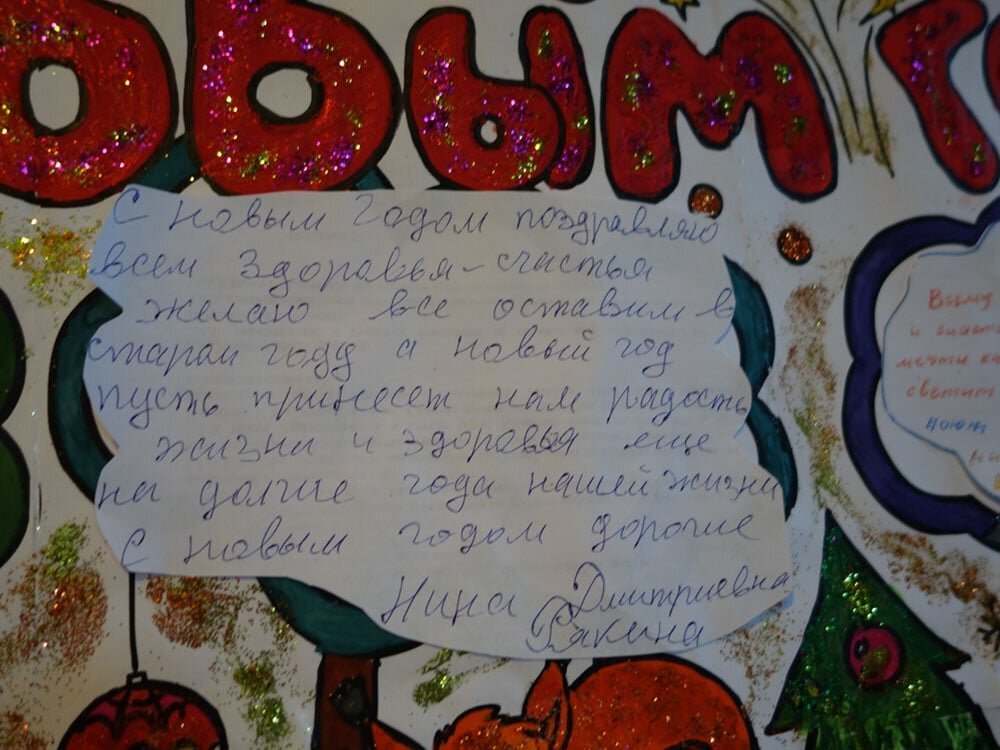 овым г
С новым годом поздравляю
всем здоровья-счастья
желаю все оставим в
старом году а новый год
пусть принесет нам радость
жизни и здоровья еще
на долгие года нашей жизни
С новым годом дорогие
Нина Дмитриевна
Ракина
Всему
и
мечты
светит
поют